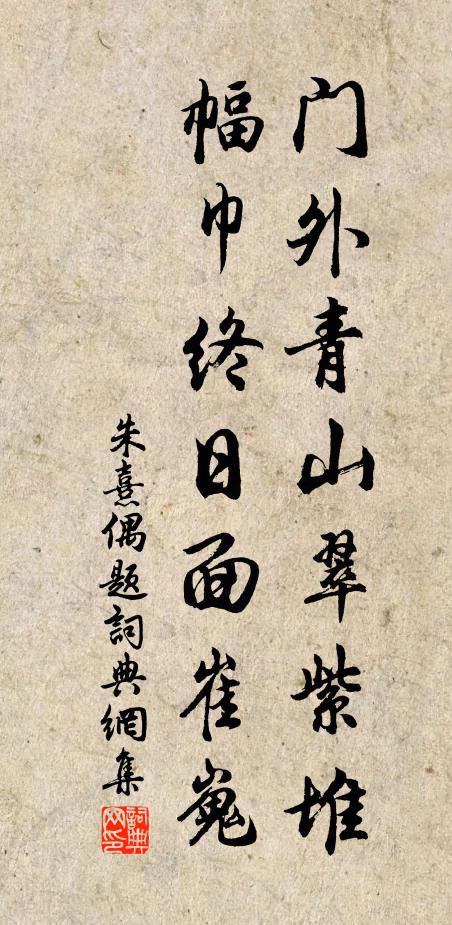 门外青山翠紫堆
幅巾终日面崔嵬
朱熹偶题詞典網集
詞典网印